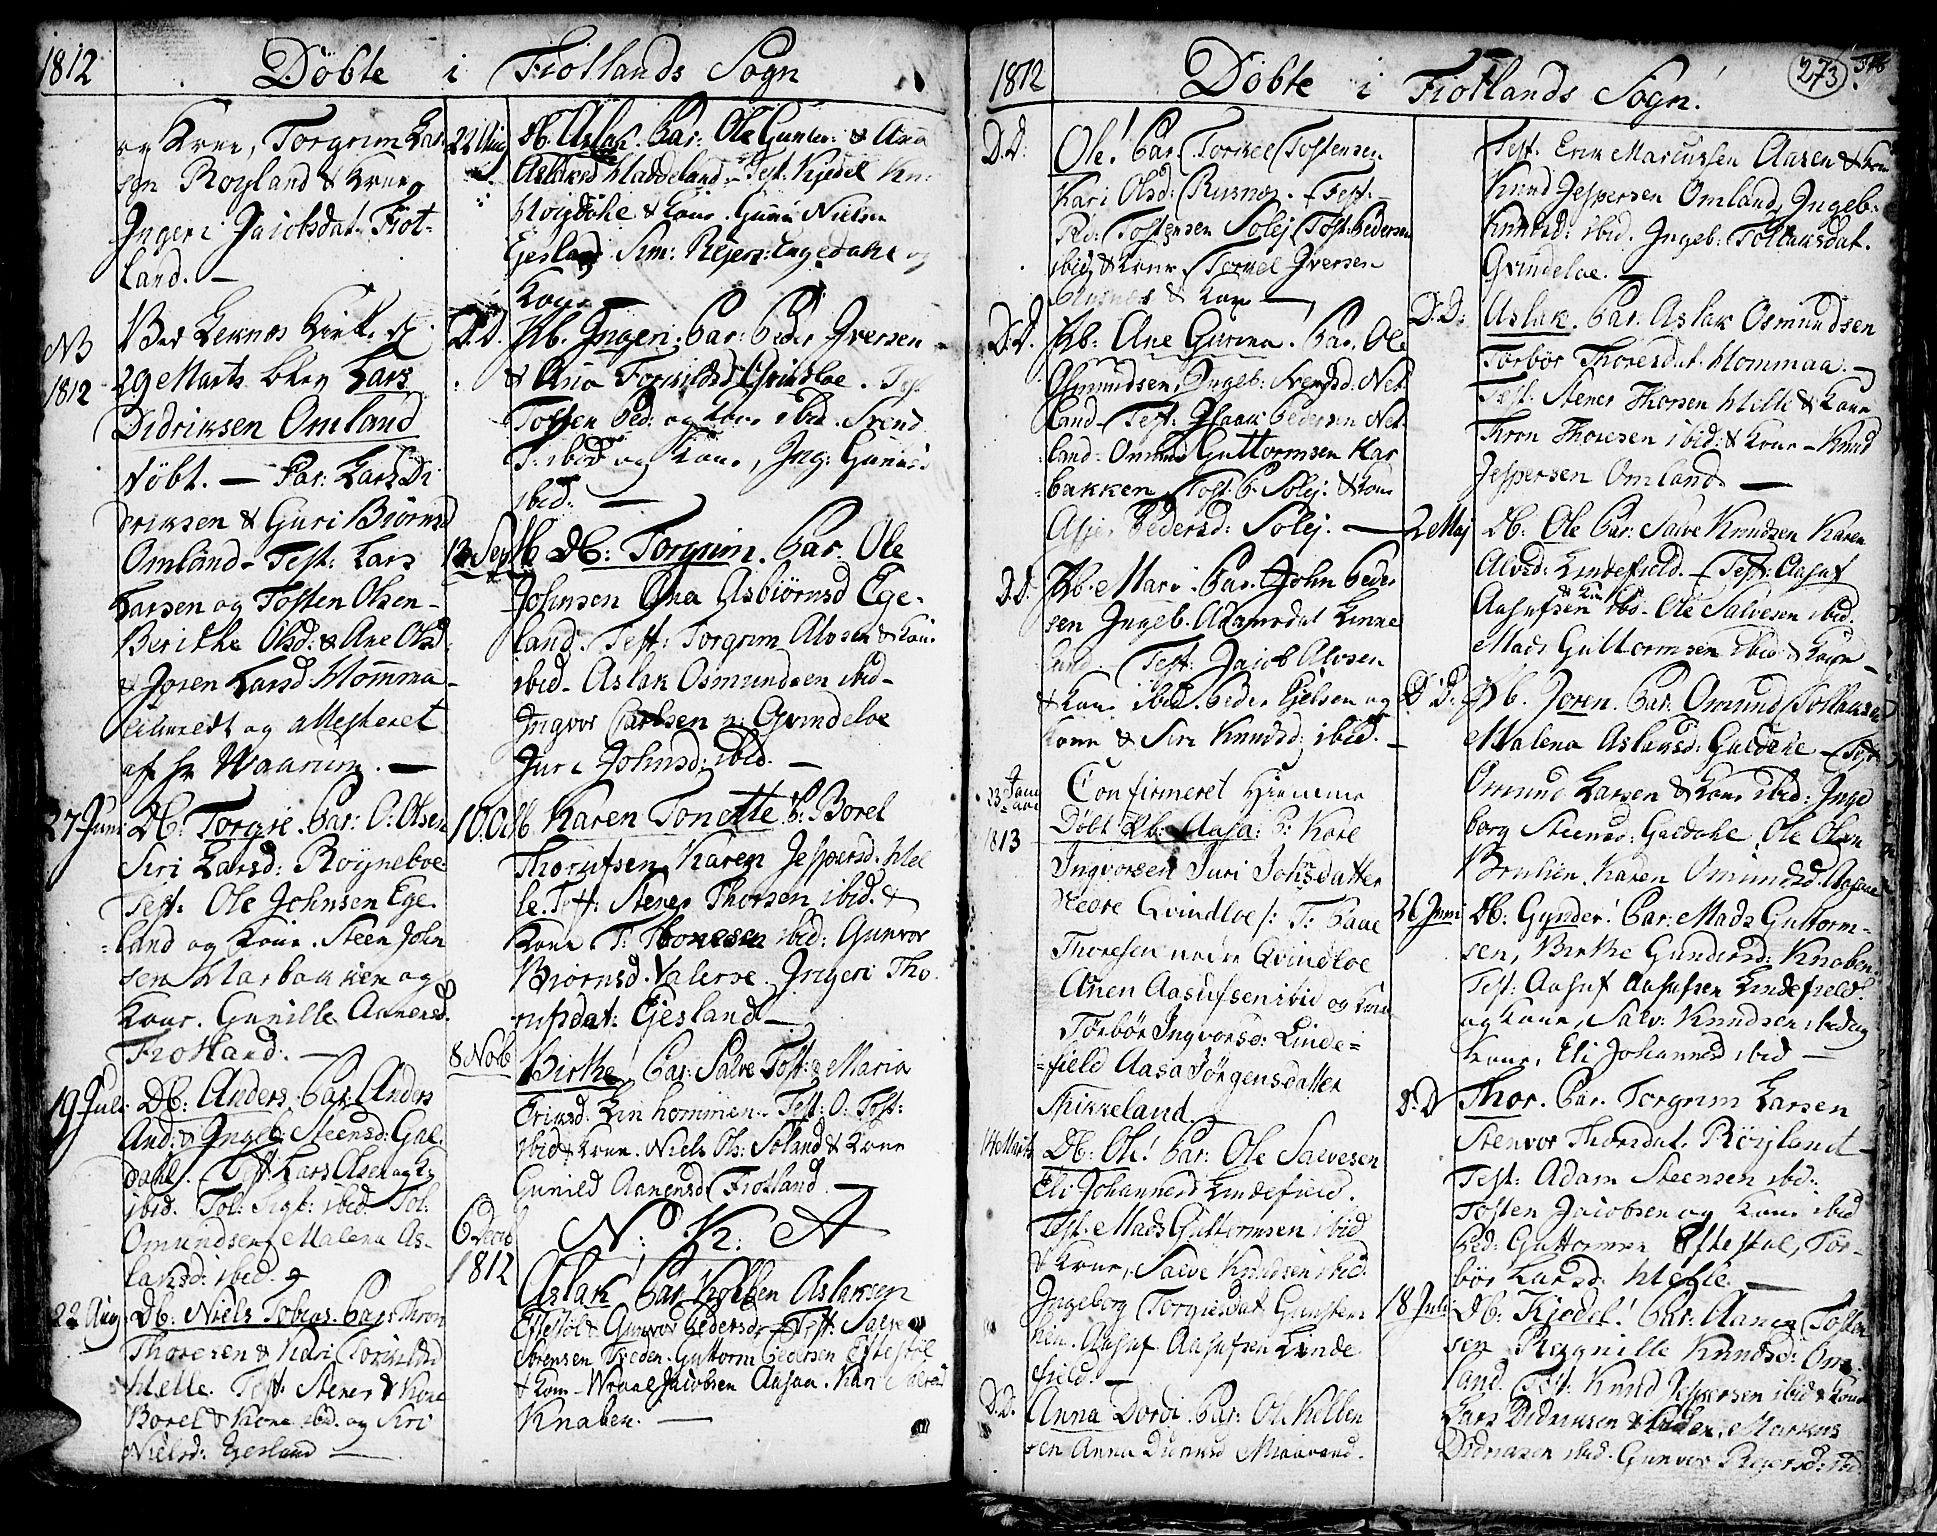 1812 Döbte i Fiotlands Sogn
og Kone, Torgrim Lar-
sen Röyland & Kone
Ingeri Jacobsdat. Fiot-
land. —
NB Ved Qvinnes Kirke d
1812 29 Marts blev Lars
Didriksen Omland
döbt. — Par: Lars Di
driksen & Guri Biörnsd
Omland - Test: Lars
Larsen og Tosten Olsen -
Berithe Olsd: & Ane Olsd
& Joren Larsd Homma -
og attesteret
af hr Waarum. —
27 Juni Db: Torgie. Par: O: Olsen
Siri Larsd: Röyneboe
Test: Ole Johnsen Ege-
land og Kone. Steen John
sen Harbakken og
Kone. Gunille Aanensd.
Fiotland. —
19 Juli Db: Anders. Par: Anders
And: & Ingeb: Steensd: Gul-
dahl. Test Lars Olsen og K
ibid. Tol: Sigb: ibid. Tol:
Omundsen Malena As-
laksd: ibid.
22 Aug Db: Niels Tobias. Par: Thron
Thoresen & Kari Torkildsd
Helle. Test. Stener & Kone
Borel & Kone ibid. og Siri
Nielsd: Egesland —
22 Aug Db. Aslak. Par: Ole Gunder: & Ana
Aslaksd Haddeland. - Test. Kjedel Kn:
& Kone. Gunu Nielsn
Egesland Sim: Rejers: og
Kone
D.D. Kb. Ingeri. Par: Peder Iversen
& Ana Torkildsd Qvindloe. Test
Tosten Ped: og Kone ibid. Svend
T: ibid og Kone, Ing: Gunu
ibid: —
13 Sept Db: Torgrim. Par. Ole
Johnsen Ana Asbiörnsd Ege-
land. Test: Torgrim Alvsen & Kone
ibid - Aslak Osmundsen ibid -
Ingvor Carlsen n: Qvindeloe
Juri Johnsd: ibid. —
10 Oct Karen Tonette P: Borel
Thorufsen Karen Jespersd. Hel
le. Test: Stener Thorsen ibid. &
Kone T: Thoresen ibid: Gunvor
Biörnsd. Valerse. Ingeri Tho
rufsdat: Egesland —
8 Nob Birthe Par: Salve Tost: & Maria
Eriksd: Linhommen. Test: O: Tost:
ibid & Kone. Niels Ols: Soland & Kone
Gunild Aanensd Fiotland —
6 Decbr N: K: A
1812 Aslak Par. Kolben Aslaksen
Eftestöl & Gunvor Pedersd — Test: Salve
Sörensen Tveden. Guttorm Pedersen Eftestöl
& Kone - Wraal Jacobsen Aasaa. Kari
Knaben. —
1812 Döbte i Fiotlands Sogn. 273
D.D: Ole! Par. Torkel Tostensen
Kari Olsd: Rusnes. Test:
Ped: Tostensen Solej Tost: Pedersen
ibid & Kone Torkel Iversen
Rusnes & Kone —
D.D. Kb: Ane Gurina. Par. Ole
Osmundsen, Ingeb: Svendsd: Net
land - Test: Isaak Pedersen Net
land: Omund Guttormsen Har
bakken Tost: P. Solej. & Kone
Asje Pedersd: Solej. —
D.D. Kb. Mari Par. John Peder
sen Ingeb. Adamsdat Linne
land — Test: Jacob Alvsen
& Kone ibid. Peder Ejelsen og
Kone & Siri Knudsd: ibid. —
23 Janu Confirmeret Hiemme
1813 Döbt Kb: Aasa: P: Kore
Ingvorsen Juri Johsdatter
Nedre Qvindloe /: T: Paae
Thoresen nedre Qvindloe
Anen Aasufsen ibid og Kone
Torbör Ingvorsd: Linde=
=field Aasa Jörgensdatter
Thikkeland
14 Marts Db: Ole! Par: Ole Salvesen
Eli Johannesd Lindefield.
Test: Mads Guttormsen ibid
& Kone, Salve Knudsen ibid:
Ingeborg Torgiesdat
Aasuf Aasufsen Linde
field. —
D.D. Anna Dordi. Par: Ol: Kolben
sen Anna Miaavand.
Test: Erik Marcussen Aasen & Kone
Knud Jespersen Omland, Ingeb:
Knudsd: ibid. Ingeb: Tollaksdat.
Qvindeloe. —
D.D: Aslak. Par: Aslak Osmundsen
Torbör Thoresdat Hommaa. —
Test: Stener Thorsen Helle & Kone
Thron Thoresen ibid: & Kone - Knud
Jespersen Omland —
2 Maj Db: Ole Par: Salve Knudsen Karen
Alvsd: Lindefield. — Test: Aasuf
Aasufsen & Kone ibid - Ole Salvesen ibid.
Mads Guttormsen ibid & Kone —
D.D: Kb. Joren. Par: Omund Tollaksen
Malena Aslaksd: Guldahl — Test:
Omund Larsen & Kone ibid: Inge
borg Steensd: Guldahl, Ole Olsen
Karen Omundsd
26 Juni Db: Gunder! Par: Mads Guttorm-
sen, Birthe Gundersd: Knaben.
Test: Aasuf Aasufsen Lindefield.
og Kone, Salv: Knudsen ibid og
Kone, Eli Johannesd ibid —
D.D Thor. Par. Torgrim Larsen
Stenvor Thorsdat. Röyland -
Test: Adam Steensen ibd:
Tosten Jacobsen og Kone ibid
Ped: Guttormsen Eftestöl, Tor-
bör Larsd: Helle. —
18 Juli Db: Kjedel! Par: Aanen Tosten
sen Ragnille Knudsd: Om-
land. Test: Knud Jespersen ibid & Kone
Lars Didriksen & Kone, Markus
Didriksen ibid. Gunvor Rejersd: ibid